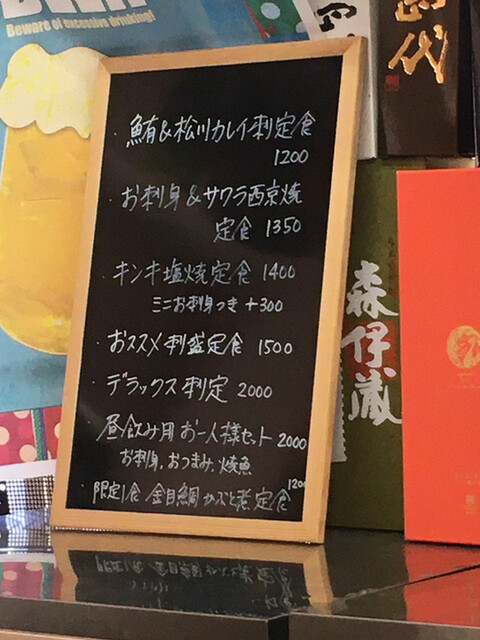 Beware of excessive drinking!
・鮪&松川カレイ刺定食
1200
・お刺身&サワラ西京焼
定食 1350
・キンキ塩焼定食 1400
ミニお刺身つき +300
・おススメ刺盛定食 1500
・デラックス刺定 2000
・昼飲み用お一人様セット 2000
お刺身、おつまみ、焼魚
・限定1食 金目鯛かぶと煮定食 1200
代
森伊蔵